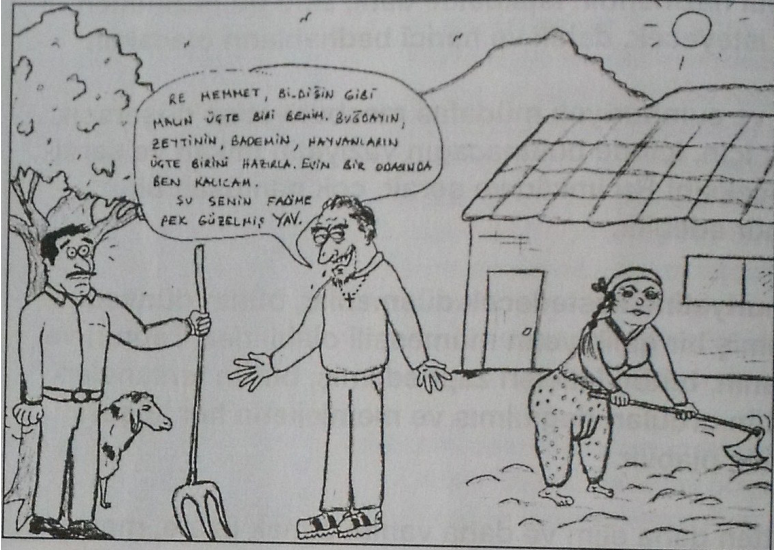 RE MEHMET, BİLDİĞİN GİBİ
MALIN ÜÇTE BİRİ BENİM. BUĞDAYIN,
ZEYTİNİN, BADEMİN, HAYVANLARIN
ÜÇTE BİRİNİ HAZIRLA. EVİN BİR ODASINDA
BEN KALICAM.
ŞU SENİN FADİME
PEK GÜZELMİŞ YAV.